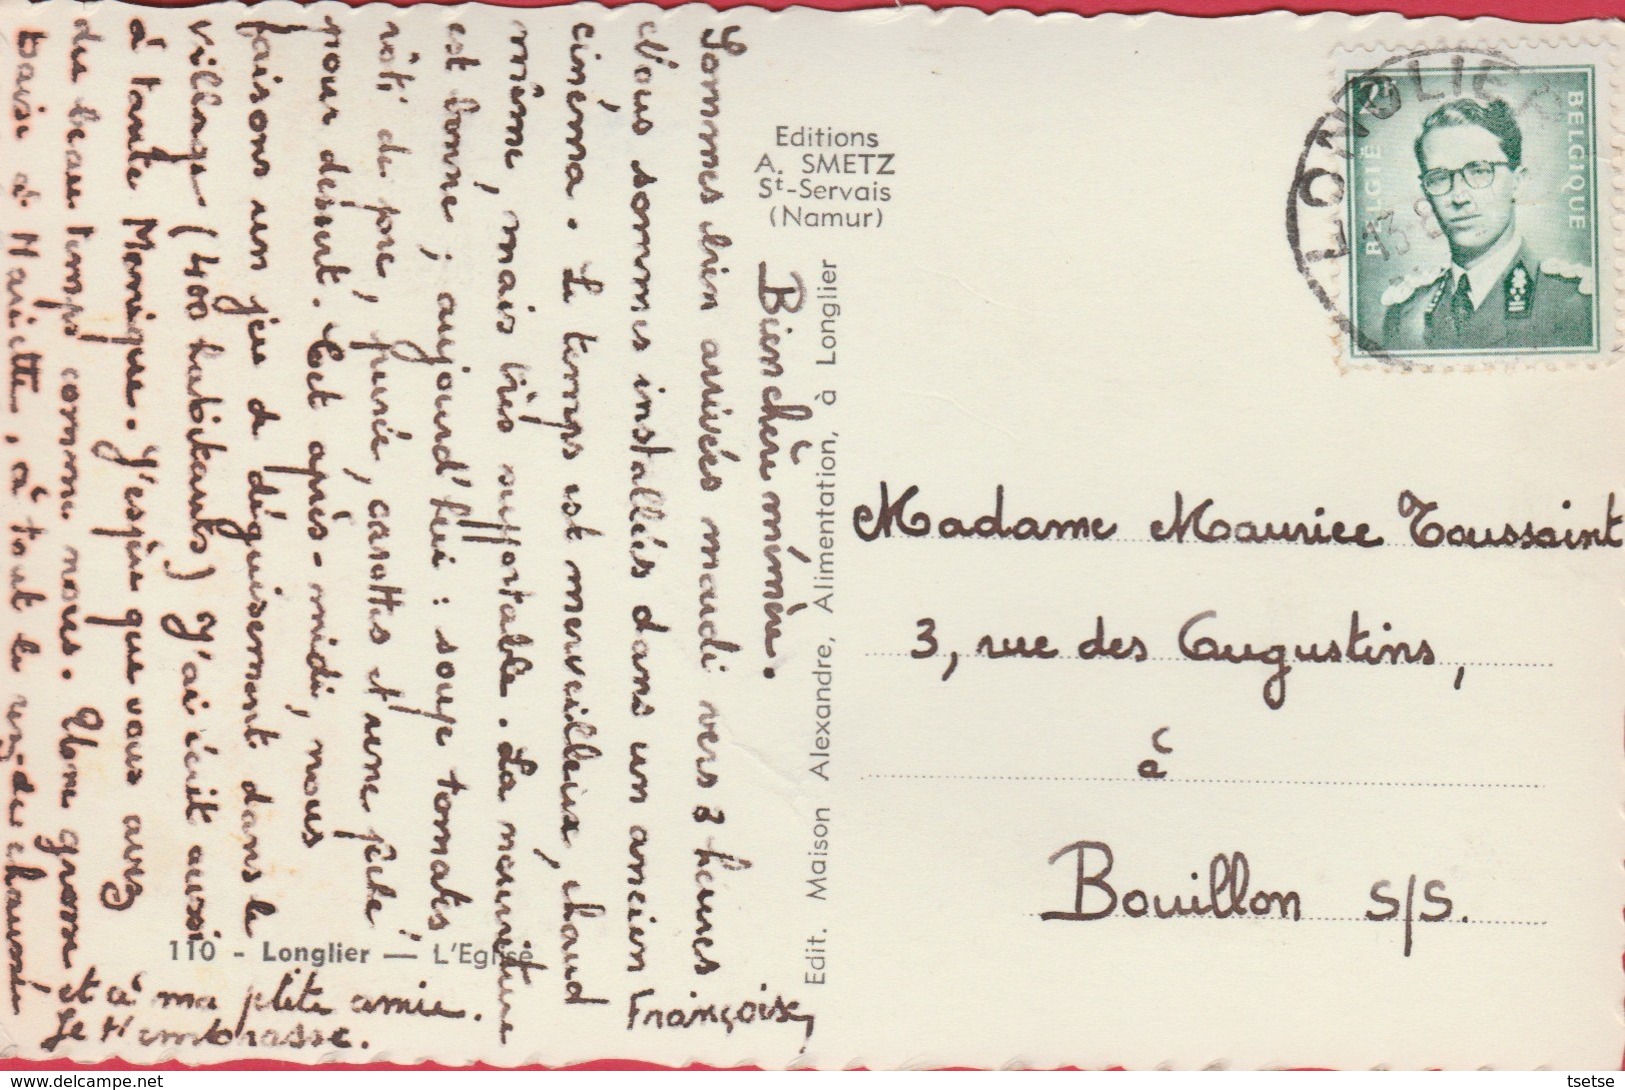 Bien chère mémère.
Sommes bien arrivés mardi vers 3 heures
Nous sommes installés dans un ancien
cinéma. Le temps est merveilleux, chaud
même, mais très supportable. La nourriture
est bonne ; aujourd'hui : soupe tomates
rôti de porc, purée, carottes et une pêche
pour désert. Cet après-midi, nous
faisons un jeu de déguisement dans le
village (400 habitants) J'ai écrit aussi
à tante Monique. J'espère que vous avez
du beau temps comme nous. Une grosse
baise à Mariette, à tout le rez-de chaussée
et à ma ptite amie.
Je t'embrasse.
Françoise,
110 - Longlier — L'Eglise
Editions
A. SMETZ
St-Servais
(Namur)
Edit. Maison Alexandre, Alimentation, à Longlier
LONGLIER
13-8
BELGIË
BELGIQUE
Madame Maurice Toussaint
3, rue des Augustins,
à
Bouillon S/S.
tsetse